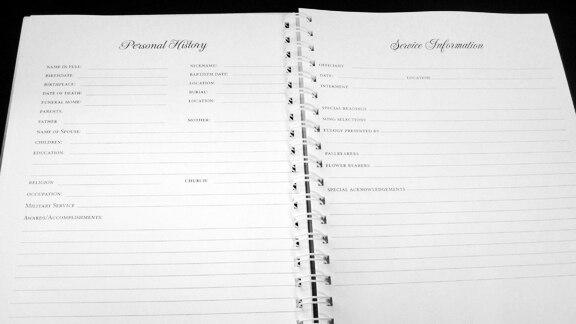 Personal History
NAME IN FULL:
NICKNAME:
BIRTHDATE:
BAPTISM DATE:
BIRTHPLACE:
LOCATION:
DATE OF DEATH:
BURIAL:
FUNERAL HOME:
LOCATION:
PARENTS:
FATHER
MOTHER:
NAME OF SPOUSE:
CHILDREN:
EDUCATION:
RELIGION
CHURCH
OCCUPATION:
MILITARY SERVICE
AWARDS/ACCOMPLISHMENTS:
Service Information
OFFICIANT
DATE:
LOCATION
INTERMENT
SPECIAL READINGS
SONG SELECTIONS
EULOGY PRESENTED BY
PALLBEARERS
FLOWER BEARERS
SPECIAL ACKNOWLEDGEMENTS